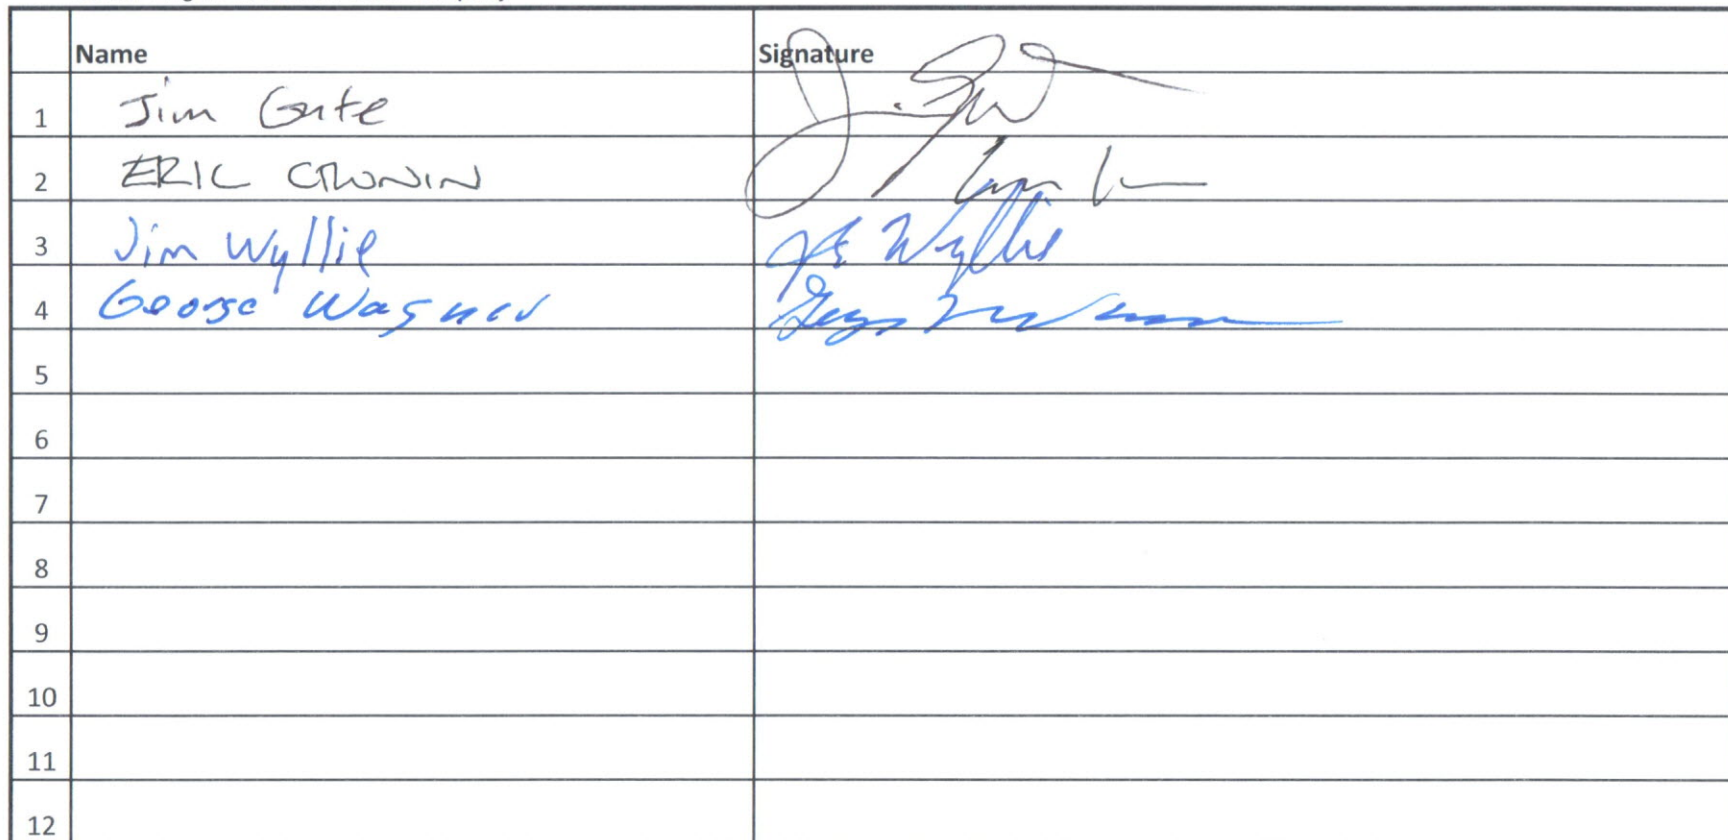 Name Signature
1 Jim Gate
2 ERIC CRONIN
3 Jim Wyllie Wyllie
4 George Wagner
5
6
7
8
9
10
11
12